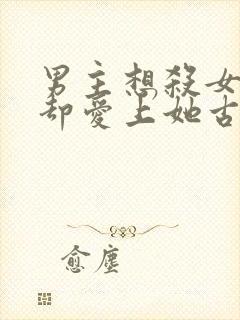 男主想殺女
却愛上她古
愈塵